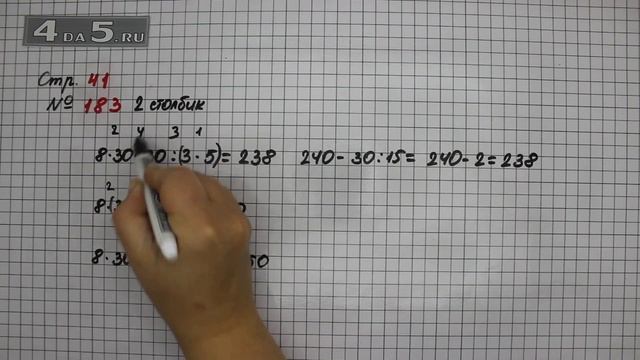 4DA5.RU
Стр. 41
№ 183 2 столбик
2 4 3 1
8·30 30:(3·5)=238 240-30:15= 240-2=238
2
8·
8·30 50